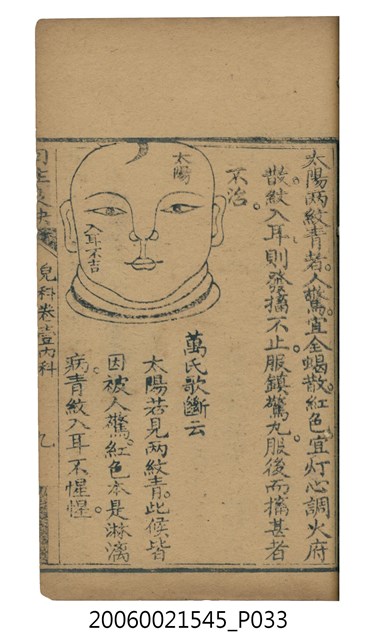 太陽兩紋青者人驚宜全蝎散紅色宜灯心調火府
散紋入耳則發搐不止服鎮驚丸服後而搐甚者
不治
太陽
入耳不吉
萬氏歌斷云
太陽若見兩紋青此候皆
因被人驚紅色本是淋漓
病青紋入耳不惺惺
兒科卷壹內科
20060021545_P033